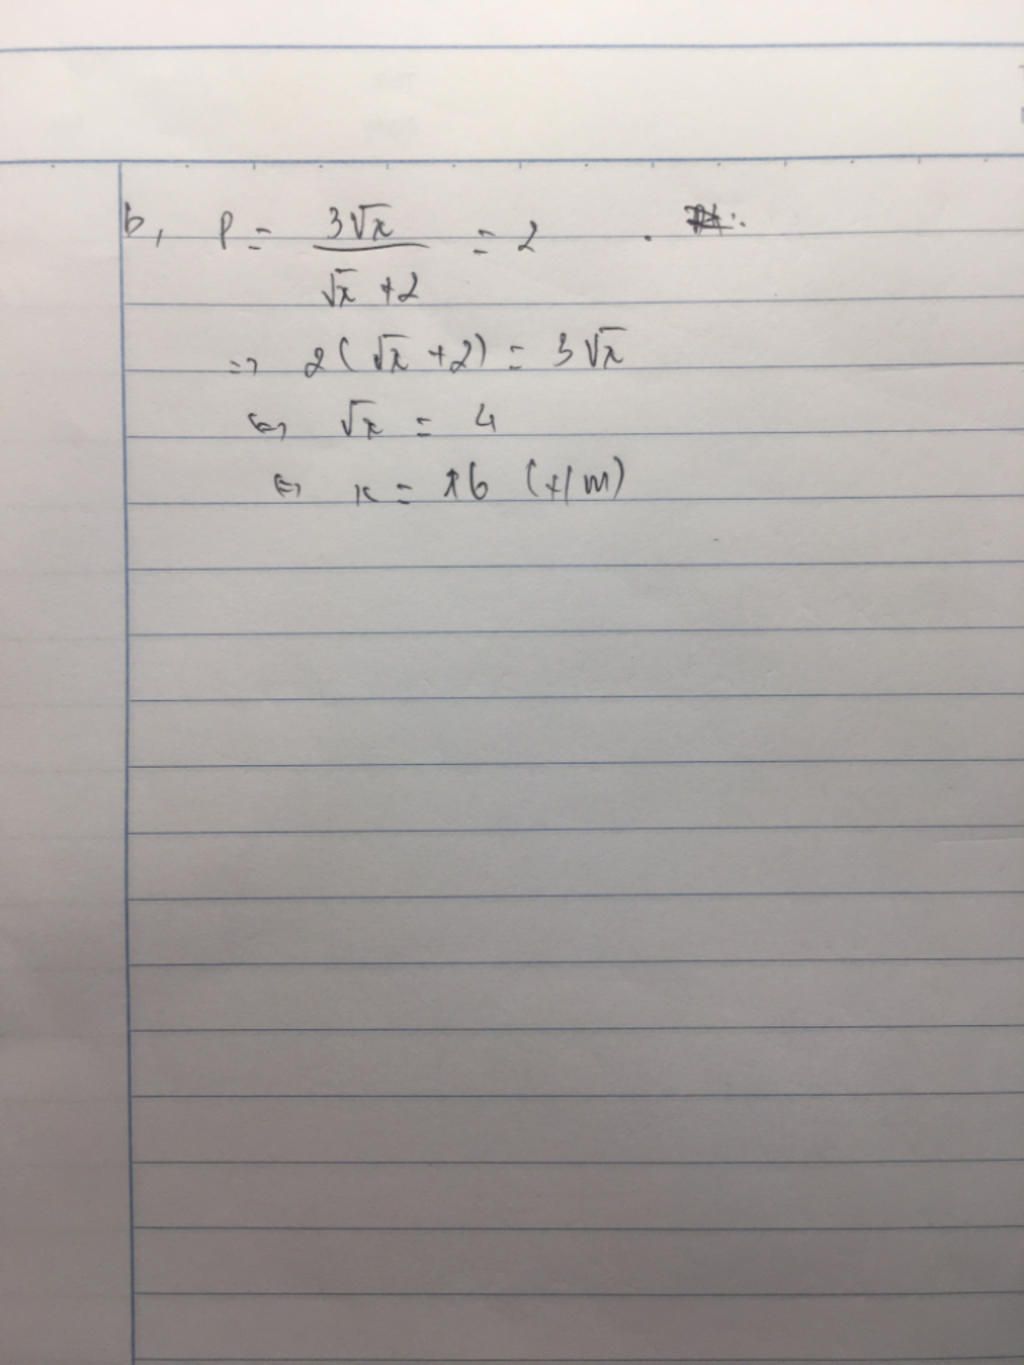 b, P = 3√x / √x + 2 = 2
=> 2(√x + 2) = 3√x
<=> √x = 4
<=> x = 16 (t/m)